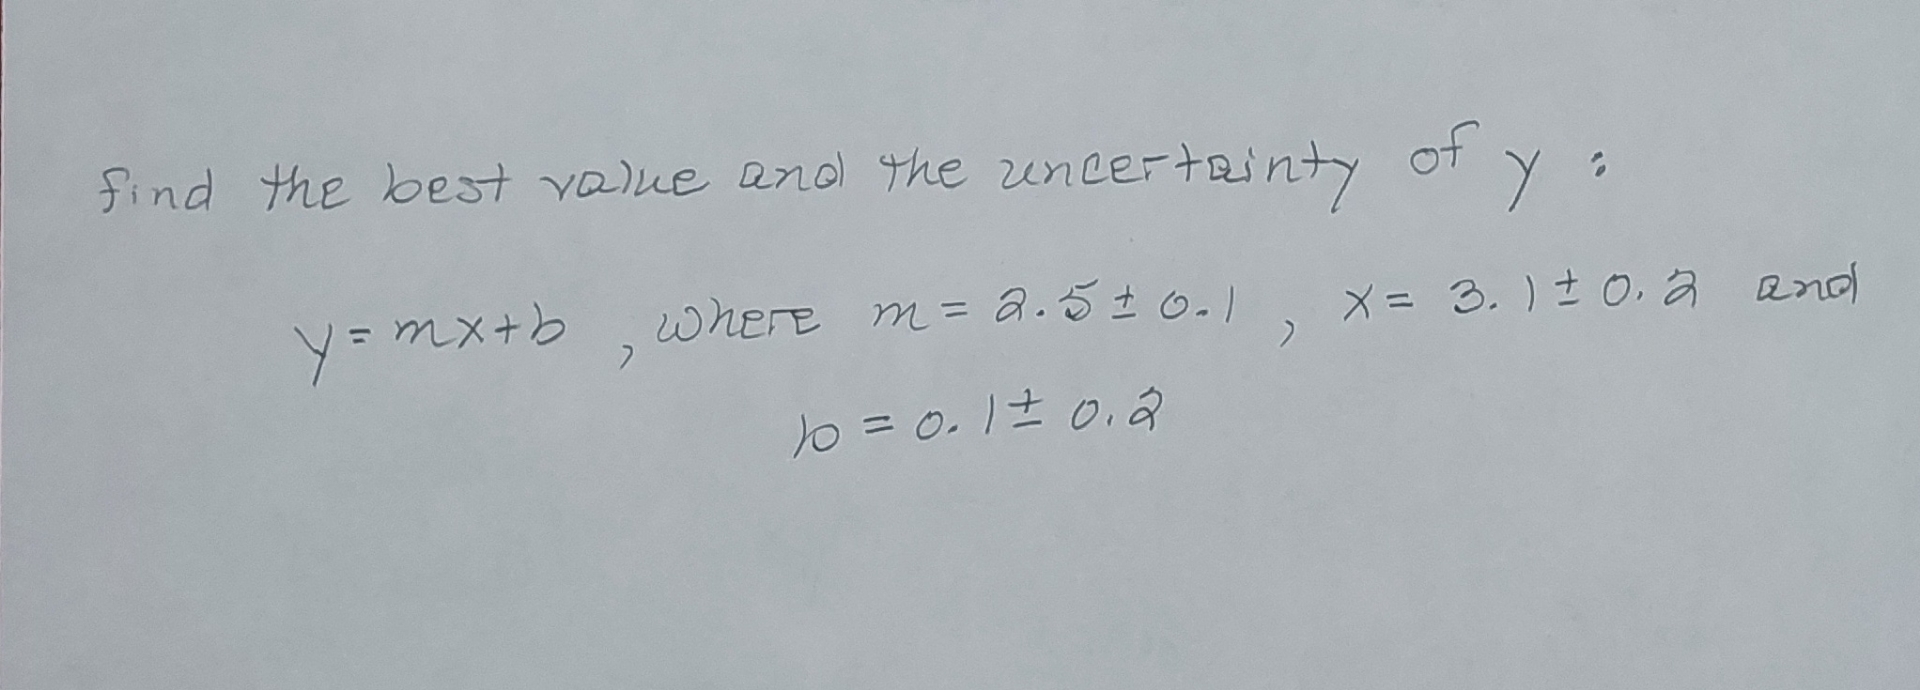 find the best value and the uncertainty of y :
y = mx+b , where m = 2.5 ± 0.1 , x = 3.1 ± 0.2 and
b = 0.1 ± 0.2